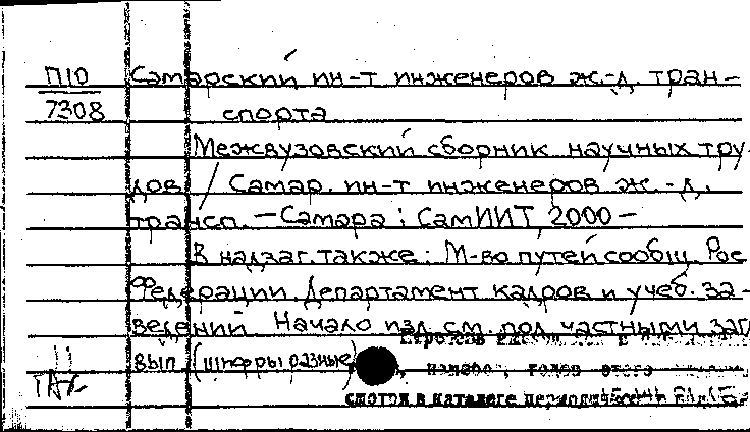 П10
7308
Самарский ин-т инженеров ж.-д. тран-
спорта
Межвузовский сборник научных тру-
дов / Самар. ин-т инженеров ж.-д.
трансп. – Самара : СамИИТ, 2000 –
В надзаг. также: М-во путей сообщ. Рос
Федерации. Департамент кадров и учеб. за-
ведений. Начало изд. см. под частными загл
вып. (шифры разные)
номера, годов этого
смотри в каталоге